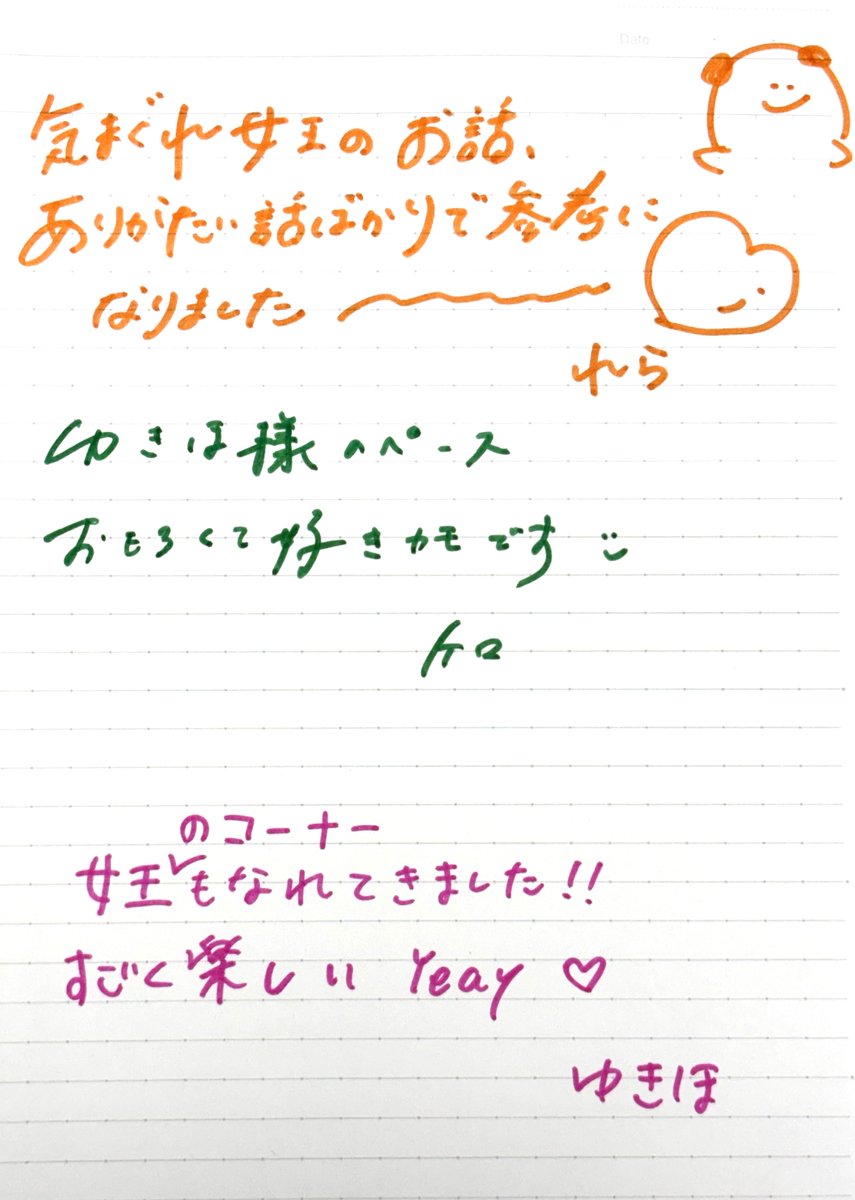 Date
気まぐれ女王のお話、
ありがたい話ばかりで参考に
なりました
れら
ゆきほ様のペース
おもろくて好きカモです
ケロ
のコーナー
女王もなれてきました!!
すごく楽しい Yeay ♡
ゆきほ